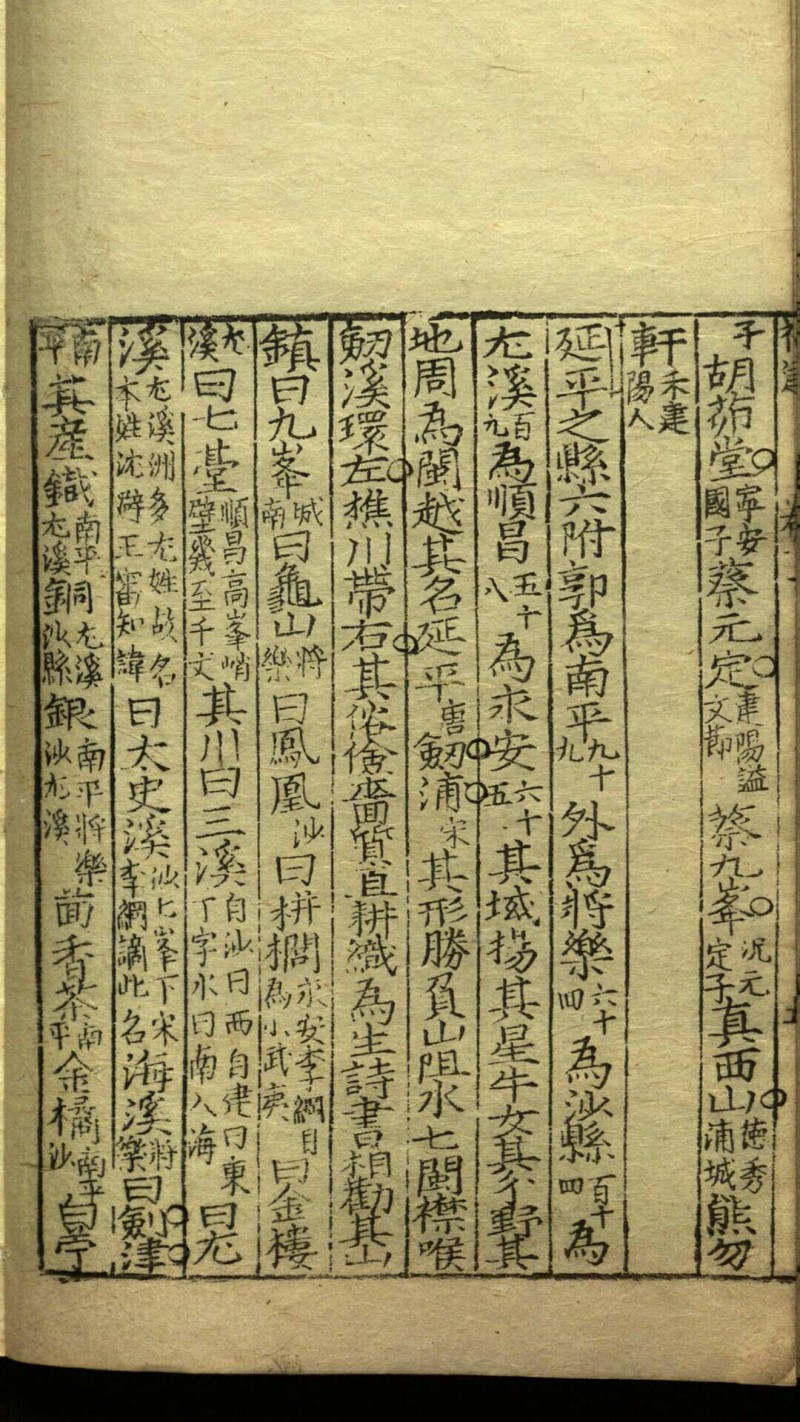 子胡茆堂寧安國子蔡元定建陽謚文節蔡九峯沉元定子真西山德秀浦城熊勿
軒禾建陽人
延平之縣六附郭爲南平九十九外爲將樂六十四為沙縣百十四為
尤溪百九為順昌五十八為永安六十五其域揚其星牛女其分野其
地周為閩越其名延平唐劔浦宋其形勝負山阻水七閩襟喉
劔溪環左樵川帶右其俗儉嗇質直耕織為生詩書相勸其山
鎮曰九峯城南曰龜山將樂曰鳳凰沙曰栟櫚永安李綱目為小武夷曰金樓
尤溪曰七臺順昌高峯峭壁幾至千丈其川曰三溪自沙曰西自建曰東丁字水曰南入海曰尤
溪尤溪洲多尤姓故名本姓沈辟王審知諱曰太史溪沙七峯下宋李綱謫此名海溪將樂曰劍津
南平其產鐵南平同尤溪銅尤溪沙縣銀南平將樂沙尤溪茴香茶南平金橘南平沙白苧